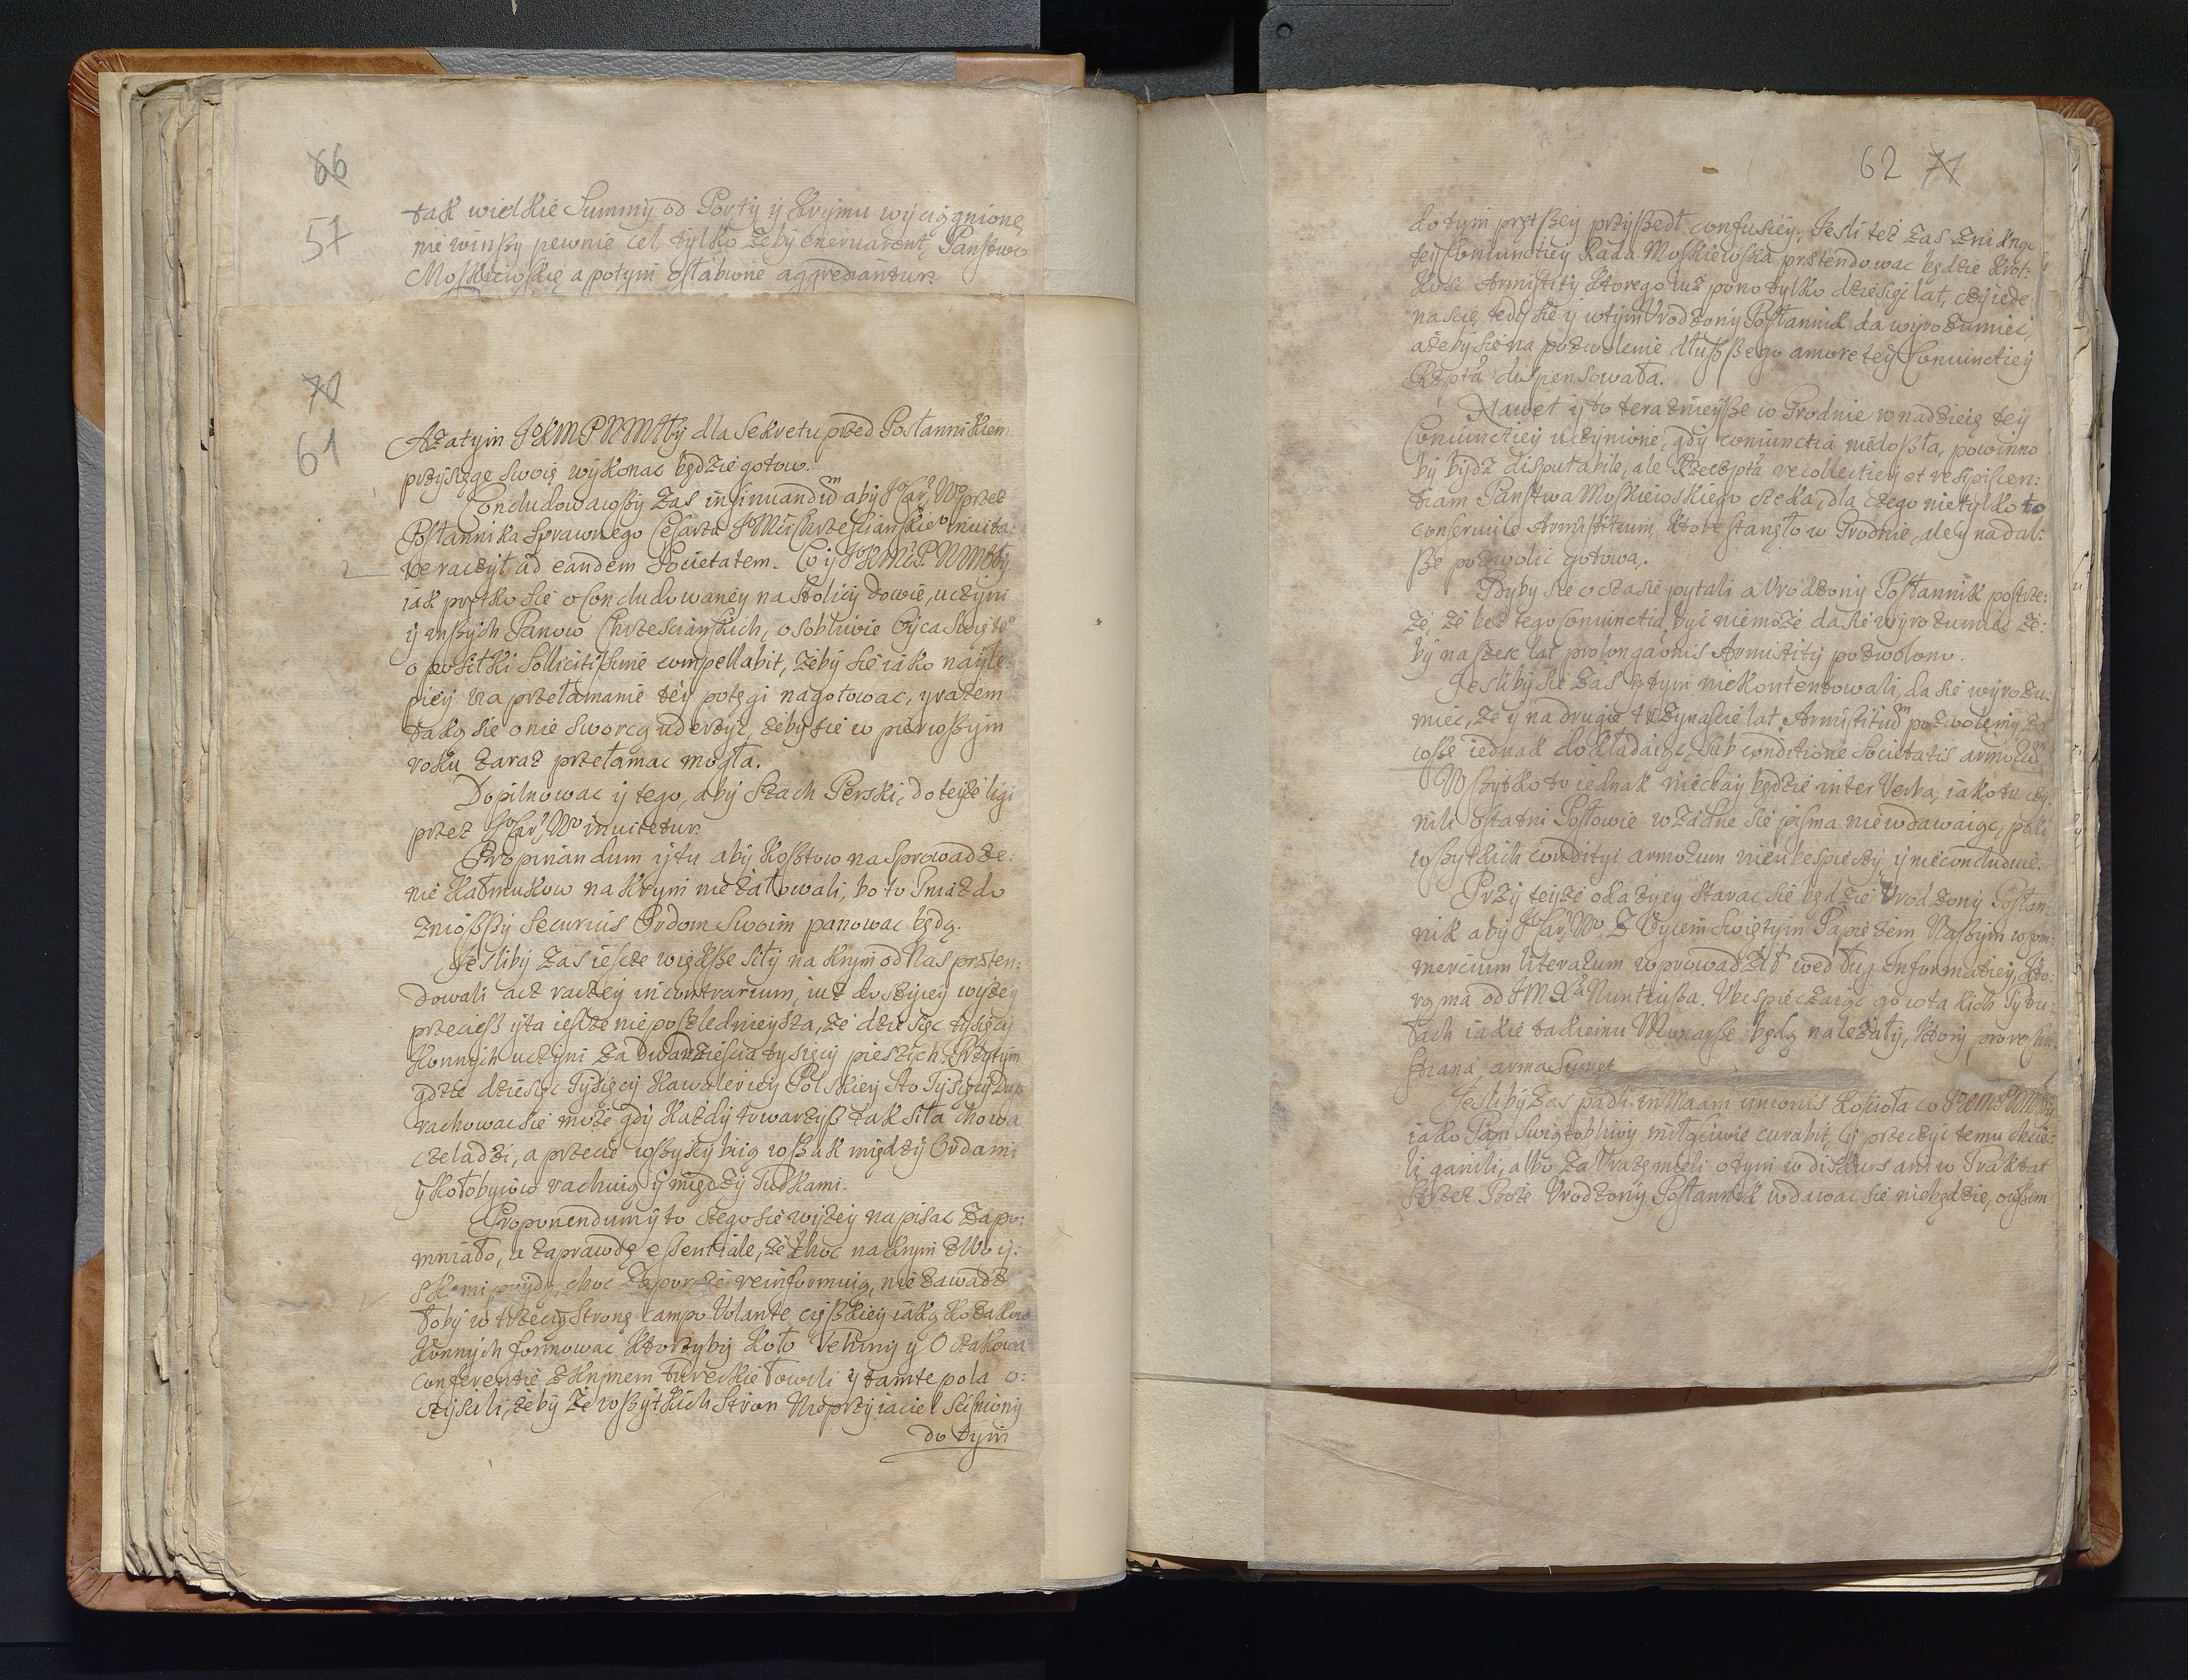 66
57
tak wielkie Summy od Porty y Krymu wyciągnione,
nie winßy pewnie cel, tylko żeby enervarent, Panstwo
Moskiewskię a potym osłabione aggrediantur.
71
61
A zatym JKMPNMłły dla Sekretu przed Posłannikiem
przysięgę swoię wykonac będzie gotow.
Concludowawßy zas insinuandum aby JoCarz Wo przez
Posłannika Sprawnego Cesarza JoMci Chrzescianskieo invita:
re raczył ad eandem Societatem. Co y JKMci P.N.Młły.
iak prętko się o Concludowaney na Stolicy dowie, uczyni
y inßych Panow Chrzescianskich, osobliwie Oyca Swięto
o posiłki Sollicitissime compellabit, żeby się iako nayle:
piey na przełamanie tey potęgi nagotowac, y razem
taką się o nie sworcą uderzyc, żeby się w pierwßym
roku zaraz przełamac mogła.
Dopilnowac y tego, aby Szach Perski, do teyże ligi
przez JoCarz Wo invitetur.
Propinandum y tu aby Koßtow na Sprowadze:
nie Kałmukow na Krym nie żałowali, bo to Gniazdo
znioßßy Securius Ordom Swoim panowac będą.
Jesliby zas ieszcze więkße siły na Krym od Nas prȩten:
dowali acz raczey in contrarium, iuż dosyc iey wyżey
przecieß y ta ieszcze nieposzlednieysza, że dziesięc tysięcy
Konnych uczyni za dwadziescia tysięcy pieszych. Przytym
gdzie dziesięc Tysięcy Kawaleriey Polskiey Sto Tysięcy Dusz
rachowac się może gdy każdy towarzyß tak siła chowa
czeladzi, a przecie wßyscy biią wßak między Ordami
y kołobyiow rachuią y między Turkami.
Proponendum y to czego się wyżey napisac zapo:
mniało, a zaprawdę essentiale, że choc na Krym z Woy:
skami poydą, choc Zaporoże reinformuią, nie zawadz
łoby w trzecią Stronę Campo Volante cięßkiey iaką Kozakow
Konnych formowac ktorzyby koło Tehiny y Oczakowa
Conferentie z Krymem tureckie łowili y tamte pola o:
czyscili, żeby ze wßytkich Stron Nieprzyiaciel scisniony
do tym
62 71
do tym pręzßey przyßedł confusiey. Jesli też zas zni kną
tey Coniunctiey Rada Moskiewska prȩtendowac będzie krot:
kosc Armistity ktorego iuż pono tylko dziesięc lat, czy iede
nascie, tedy się y w tym Urodzony Posłannik da wyrozumiec,
ażeby się na pozwolenie dłußßego amore tey Coniunctiey
Rzpta dispensowała.
Nawet y to teraznieyße w Grodnie w nadzieię tey
Coniunctiey uczynione, gdy coniunctia niedoßła, powinno
by bydz disputabile, ale Rzeczpta recollectiey et resipiscen:
tiam Panstwa Moskiewskiego czeka, dla czego nie tylko to
conservuie Armistitium, ktore stanęło w Grodnie, ale y na dal:
ße pozwolic gotowa.
Gdyby się o czasie pytali a Urodzony Posłannik postrze:
że, że bez tego coniunctia byc niemoże da się wyrozumiec że:
by na szesc lat prolongationis Armistity pozwolono.
Jesliby się zas y tym niekontentowali, da się wyrozu:
miec, że y na drugie trzynascie lat Armistitium pozwolemy, za
wße iednak dokładaiąc, sub conditione Societatis armorum.
Wßytko to iednak niechay będzie inter Verba, iako tu czy:
nili ostatni Posłowie w żadne się pisma niewdawaiąc, poki
wßytkich conditij armorum nieubespieczy, y nieconcluduie.
Przy teyże okazyey starac się będzie Urodzony Posłan:
nik aby JoCarz Wo. z Oycem Swiętym Papieżem Naßym com:
mercium literarum wprowadził według informatiey, kto:
rą ma od JM Xa Nuntiußa. Ubespieczaiąc go w takich Tytu:
łach iakie takiemu Monarße będą należały, ktory pro re chri:
stiana arma Sumet
Jesliby zas padła in Maam unionis koscioła co
iako Pan Swiątobliwy miłosciwie curabit, y przeczyc temu chcie:
li, ganili, albo za Urazę mieli o tym w diskurs ani w Traktat
strzez Boże Urodzony Posłannik wdawac się niebędzie, owßem